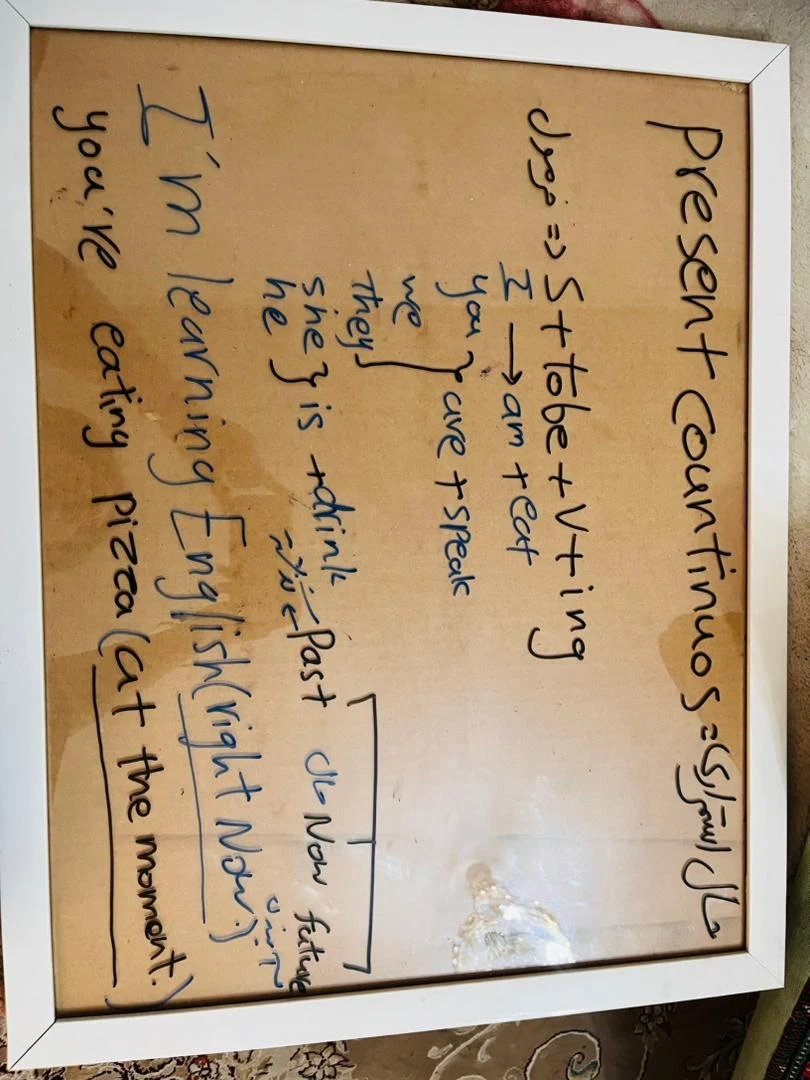 Present Countinuos = حال استمراری
فرمول => S + tobe + V + ing
I → am + eat
you } are + speak
we
they
she } is + drink
he
Past حال Now future
گذشته آینده
I'm learning English (right Now.)
you're eating pizza (at the moment.)